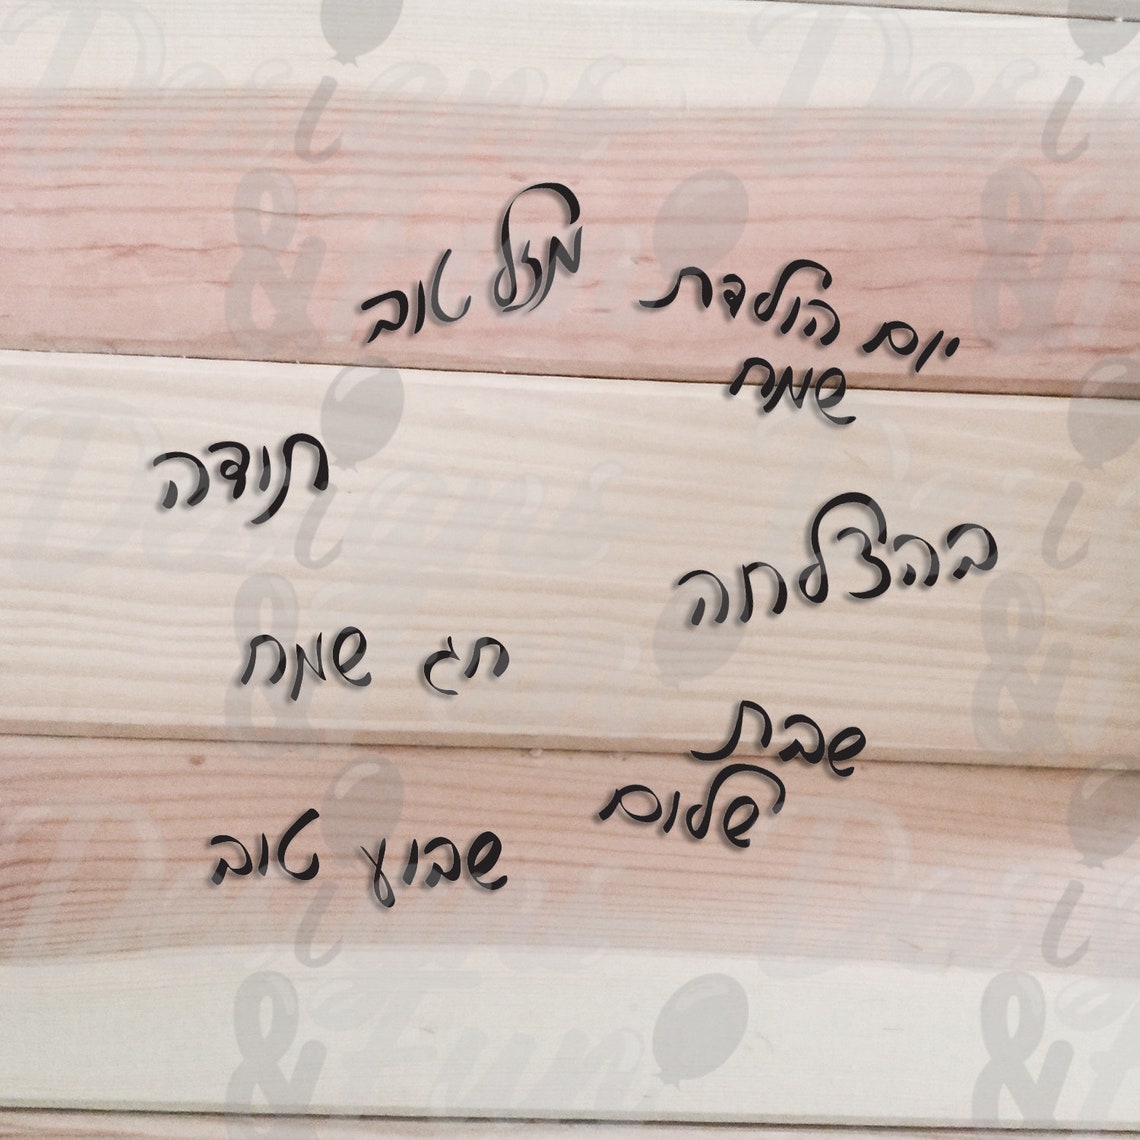 מזל טוב
יום הולדת
שמח
תודה
בהצלחה
חג שמח
שבת
שלום
שבוע טוב
Designs
& Fun